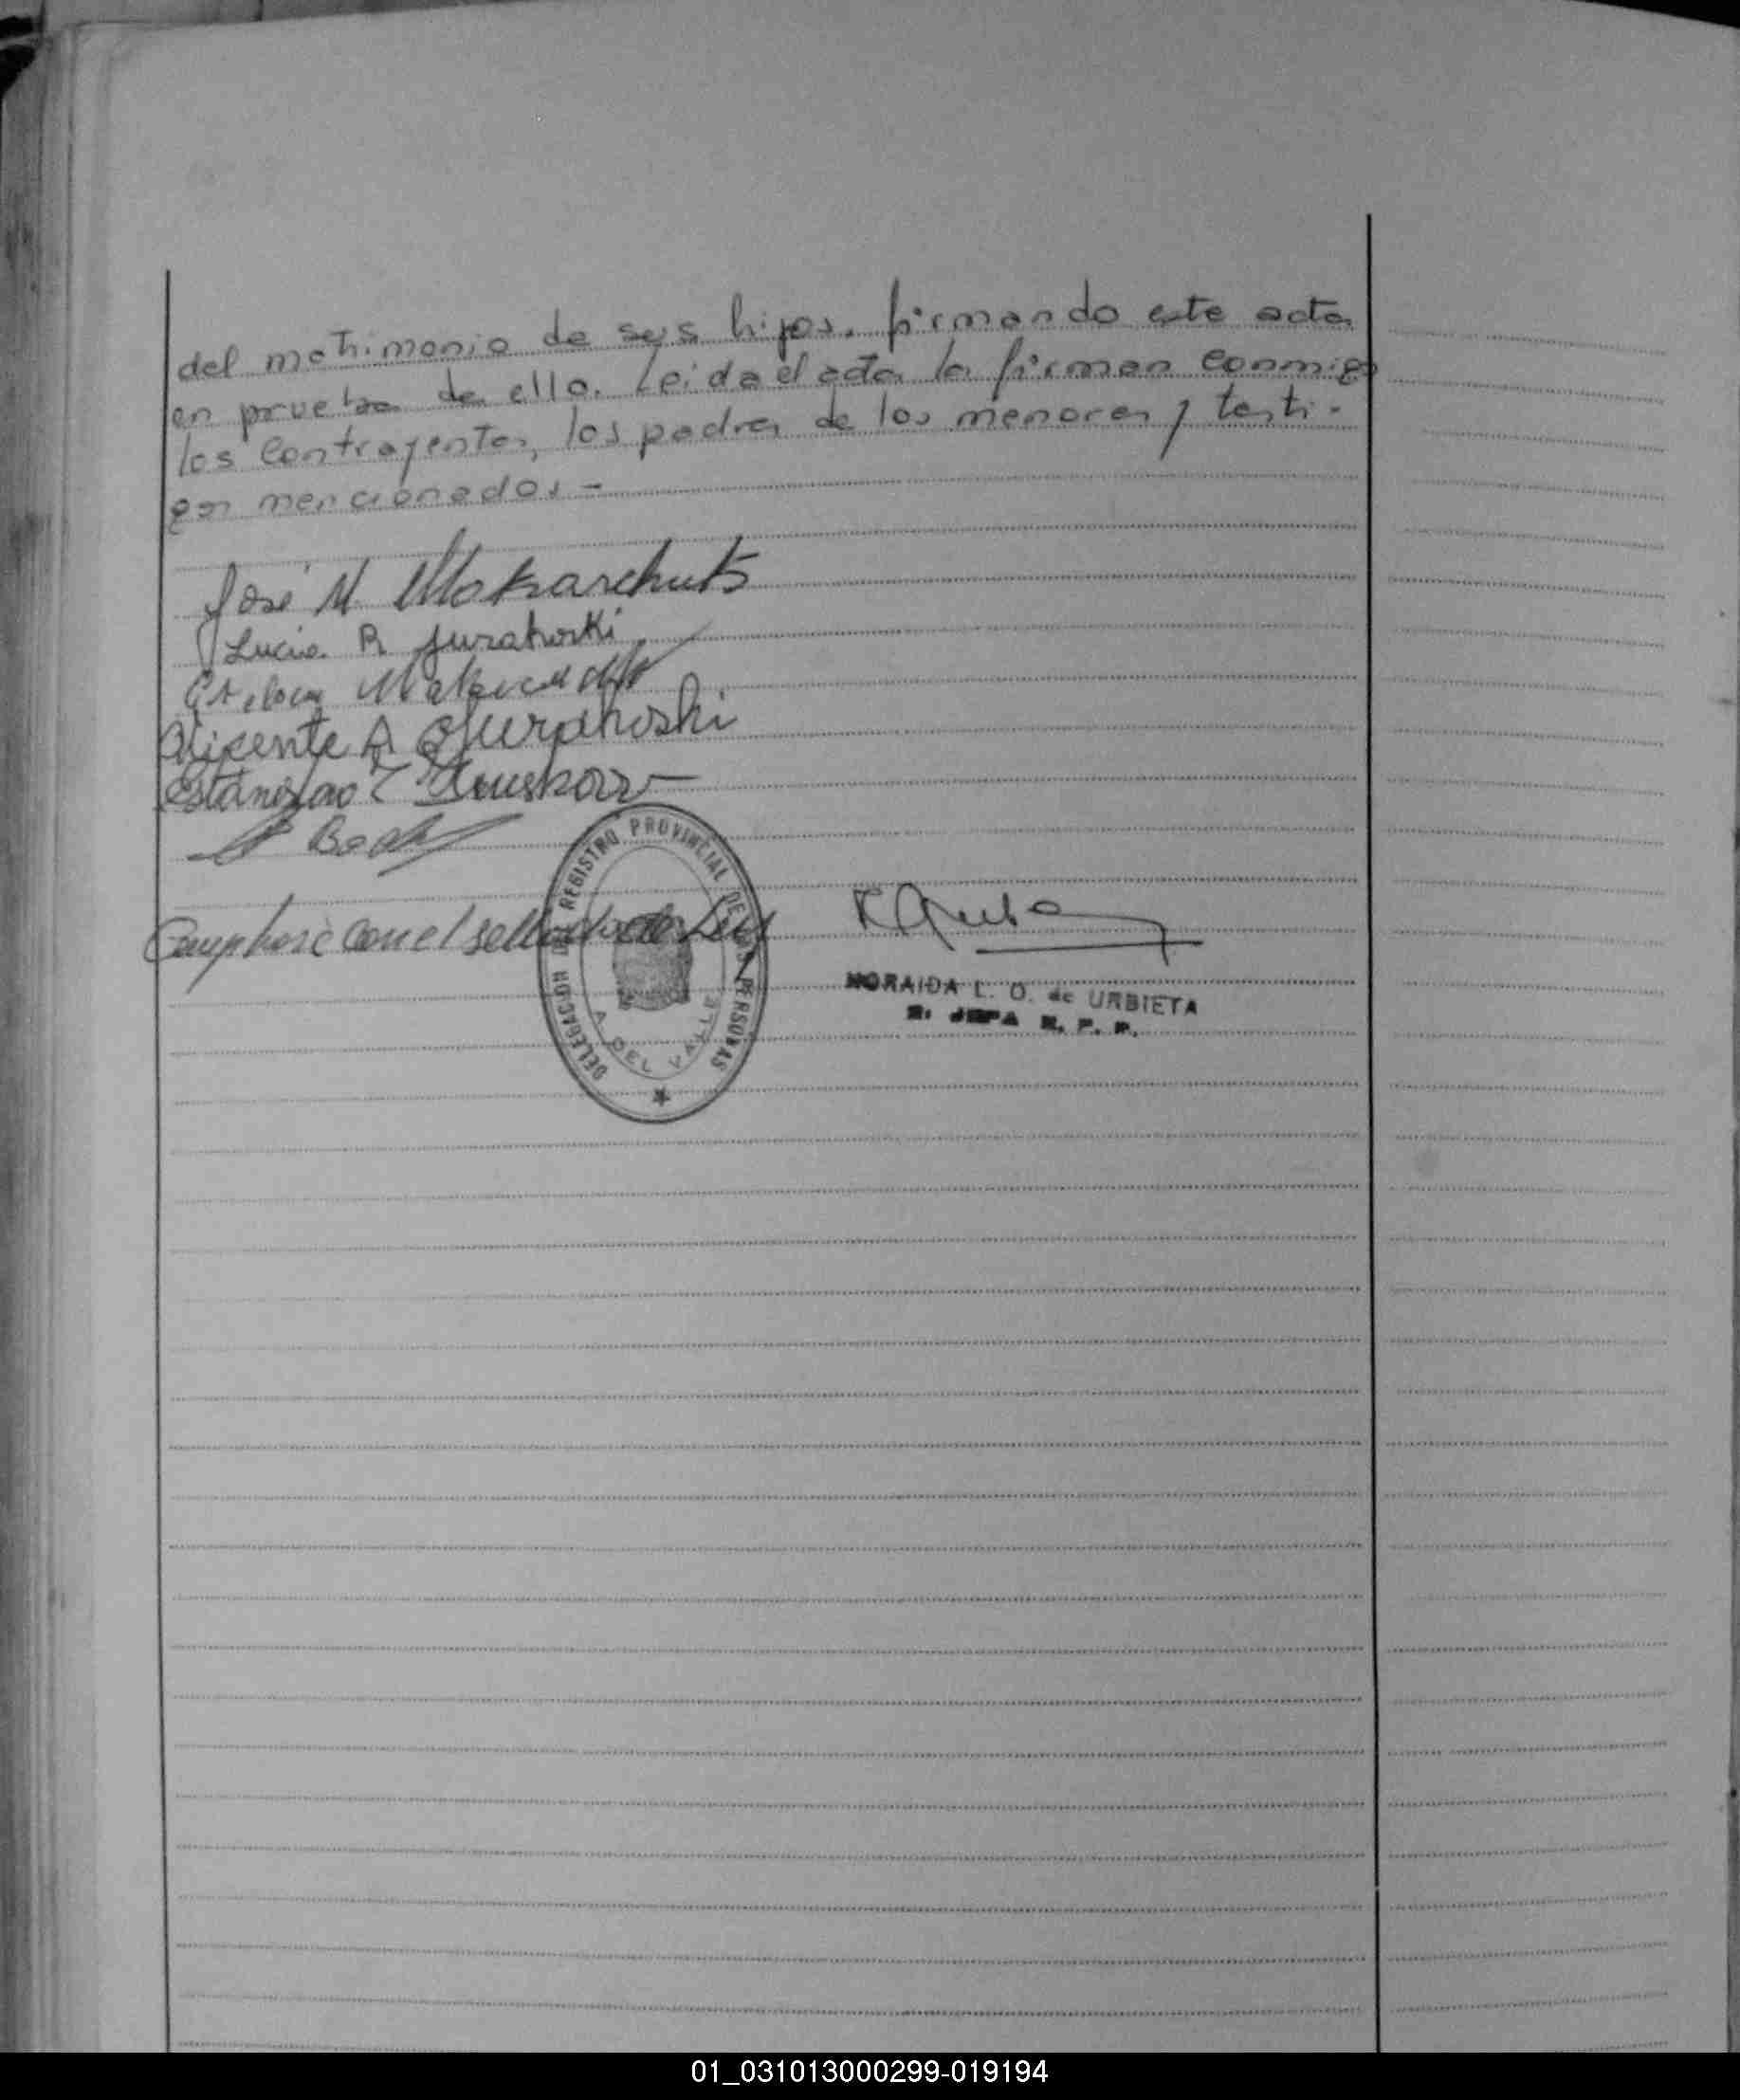 del matrimonio de sus hijos. firmando este acta
en prueba de ello. Leida el acta la firman conmigo
los contrayentes, los padres de los menores y testi-
gos mencionados -
José M. Makarchuk
Lucia R Jurakoski
Vicente A Jurakoski
Estanislao
con el sellado de Ley
DELEGACION DEL REGISTRO PROVINCIAL DE LAS PERSONAS
A DEL VALLE
NORAIDA L. O. de URBIETA
JEFA R. P. P.
01_031013000299-019194